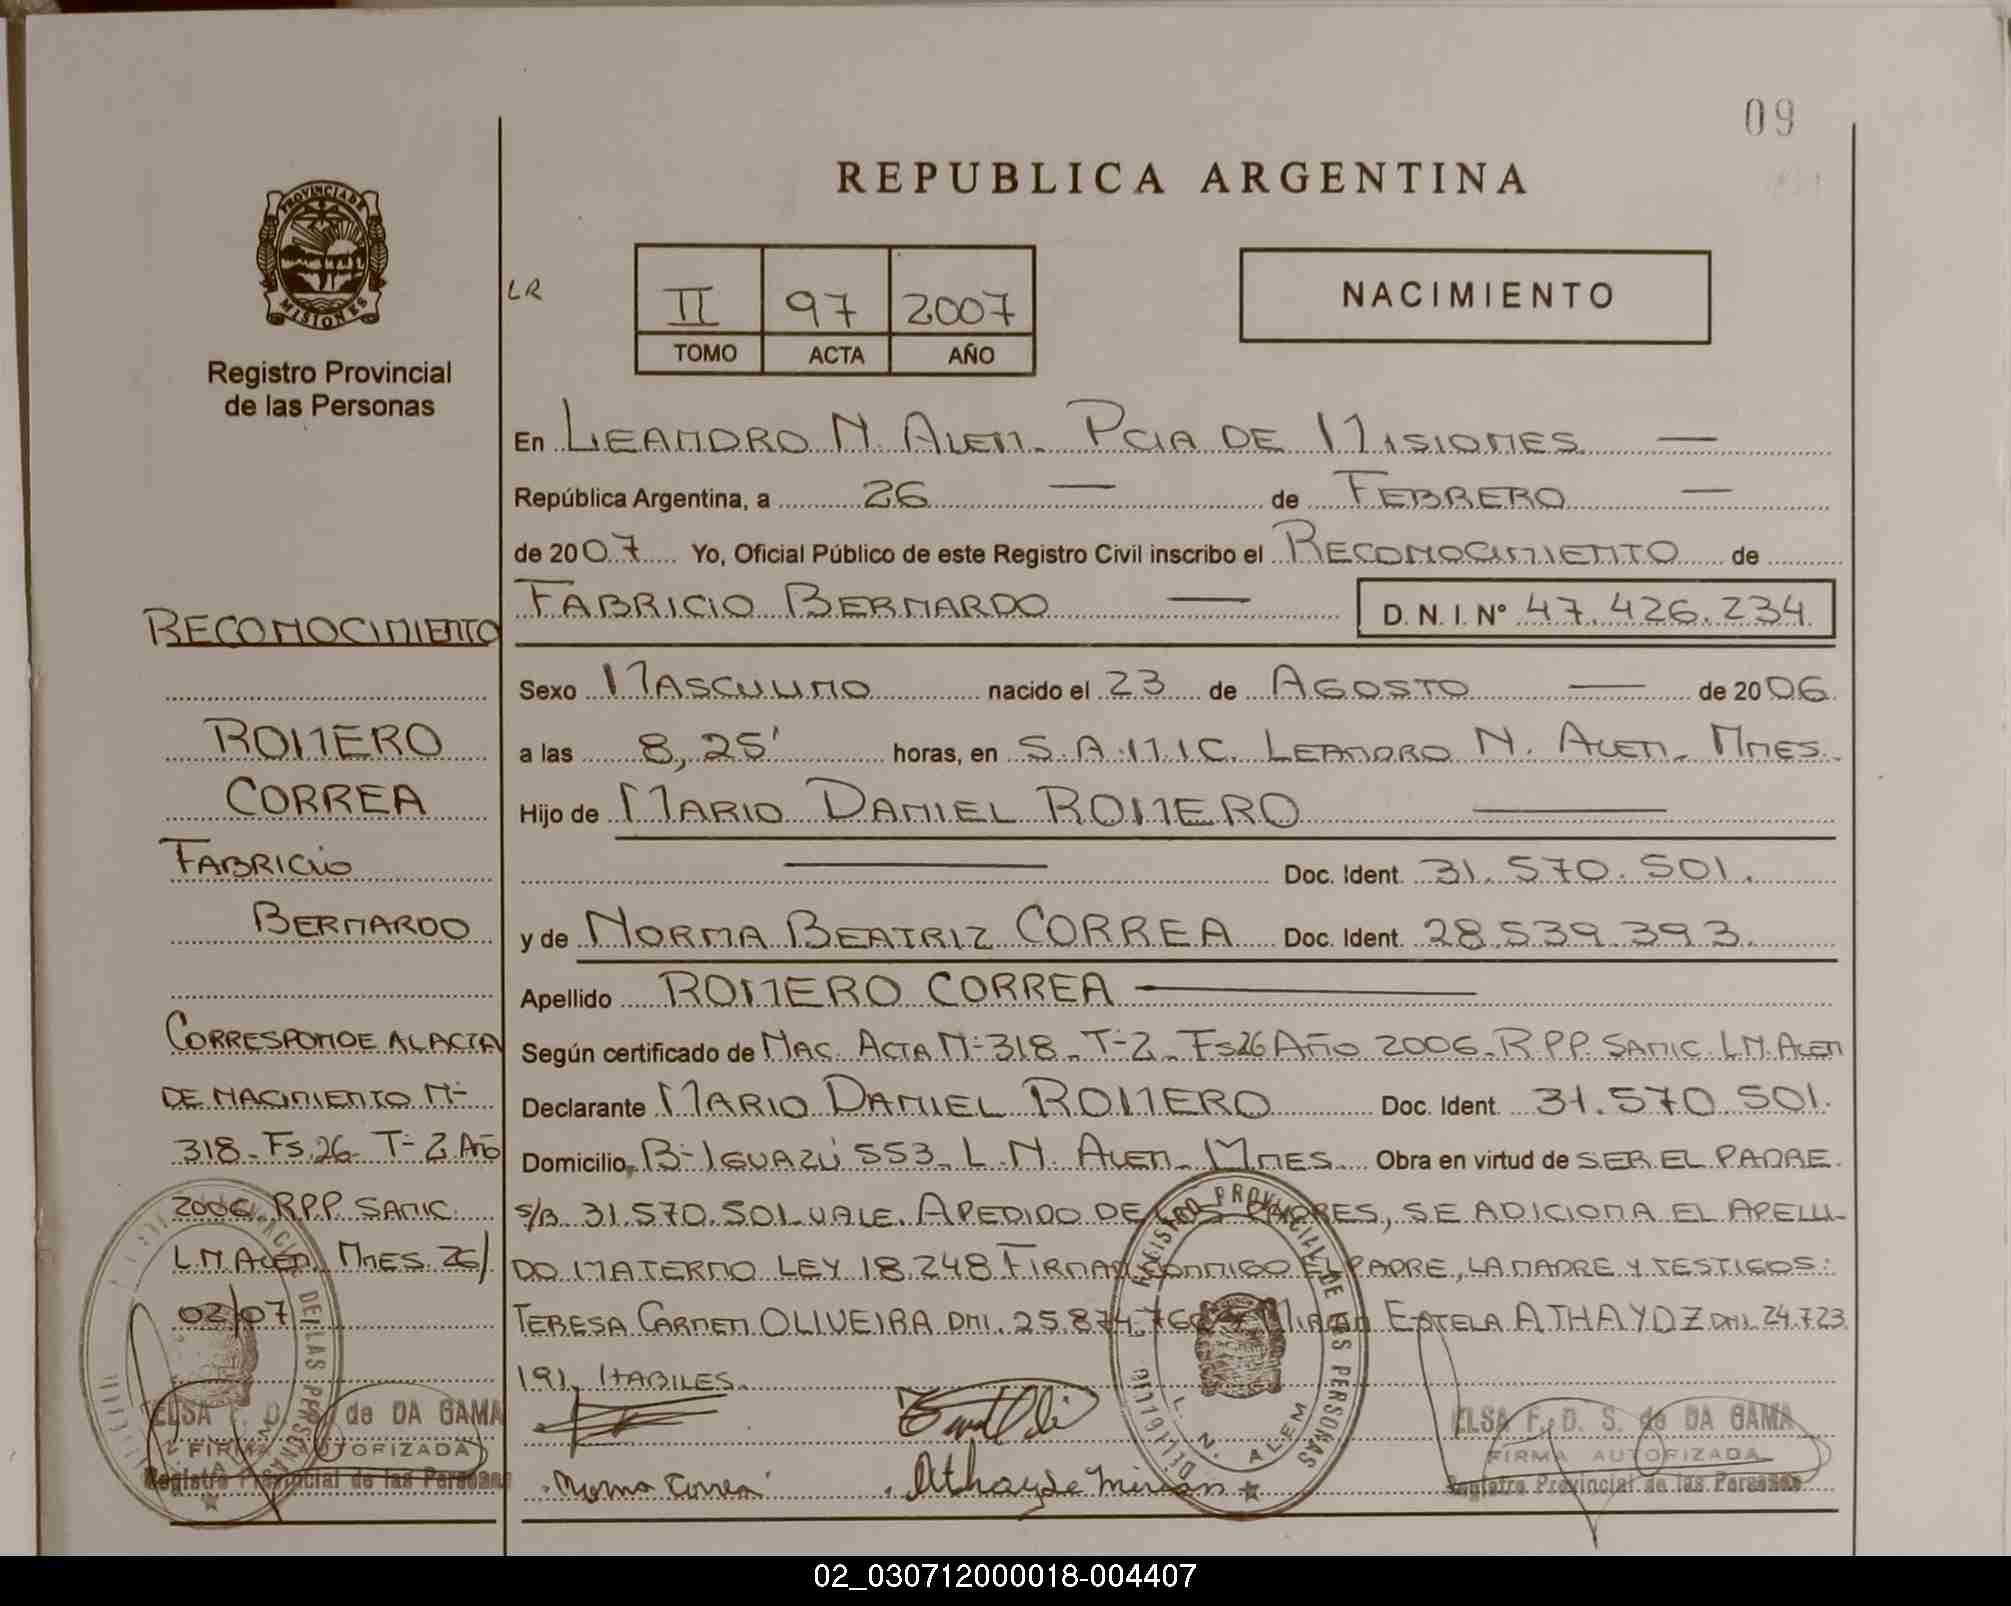 09
REPUBLICA ARGENTINA
PROVINCIA DE
MISIONES
Registro Provincial
de las Personas
LR
II 97 2007
TOMO ACTA AÑO
NACIMIENTO
En LEANDRO N. ALEM. PCIA DE MISIONES —
República Argentina, a 26 — de FEBRERO —
de 2007 Yo, Oficial Público de este Registro Civil inscribo el RECONOCIMIENTO de
FABRICIO BERNARDO — D. N. I. N° 47.426.234
Sexo MASCULINO nacido el 23 de AGOSTO — de 2006
a las 8,25' horas, en S.A.M.I.C. LEANDRO N. ALEM. MNES.
Hijo de MARIO DANIEL ROMERO —
— Doc. Ident. 31.570.501.
y de NORMA BEATRIZ CORREA Doc. Ident. 28.539.393.
Apellido ROMERO CORREA —
Según certificado de NAC. ACTA N- 318. T-2. Fs26 AÑO 2006. R.P.P. SAMIC. L.N. ALEM
Declarante MARIO DANIEL ROMERO Doc. Ident. 31.570.501.
Domicilio B- IGUAZÚ 553. L.N. ALEM. MNES. Obra en virtud de SER EL PADRE.
S/B 31.570.501. VALE. A PEDIDO DE LOS PADRES, SE ADICIONA EL APELLI-
DO MATERNO LEY 18.248 FIRMAN CONMIGO EL PADRE, LA MADRE Y TESTIGOS:
TERESA CARMEN OLIVEIRA DNI. 25.874. ESTELA ATHAYDZ DNI. 24.723
191. HABILES.
Norma Correa
Athayde Mirian
REGISTRO PROVINCIAL DE LAS PERSONAS
L. N. ALEM
ELSA F. D. S. de DA GAMA
FIRMA AUTORIZADA
Registro Provincial de las Personas
RECONOCIMIENTO
ROMERO
CORREA
FABRICIO
BERNARDO
CORRESPONDE AL ACTA
DE NACIMIENTO N-
318. Fs.26. T-2 AÑO
2006. R.P.P. SAMIC.
L.N. ALEM. MNES. 26/
02/07
ELSA F. D. de DA GAMA
FIRMA AUTORIZADA
Registro Provincial de las Personas
02_030712000018-004407